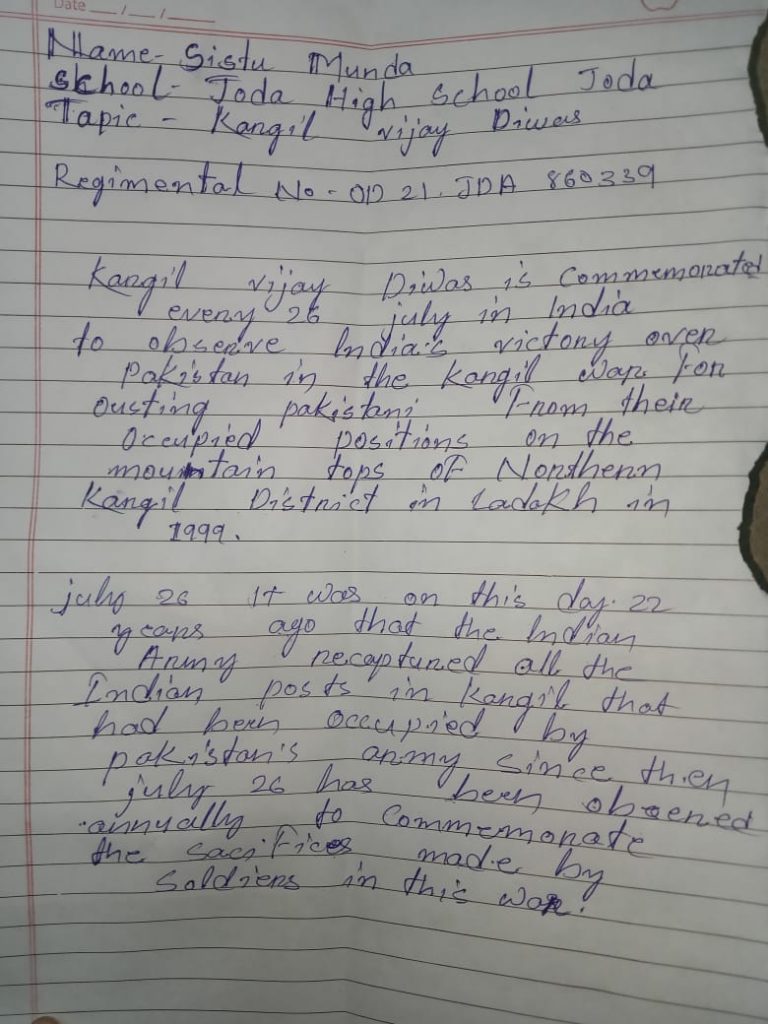 Date __/__/____
Name- Sistu Munda
School- Joda High School Joda
Tapic - Kangil vijay Diwas
Regimental No - OD 21. JDA 860339
Kangil vijay Diwas is Commemorated
every 26 july in India
to observe India's victory over
Pakistan in the Kangil War For
ousting pakistani From their
Occupied positions on the
mountain tops of Northern
Kangil District in Ladakh in
1999.
july 26 It was on this day. 22
years ago that the Indian
Army recaptured all the
Indian posts in Kangil that
had been occupied by
pakistan's army since then
july 26 has been obsened
annually to Commemorate
the sacrifices made by
Soldiers in this war.